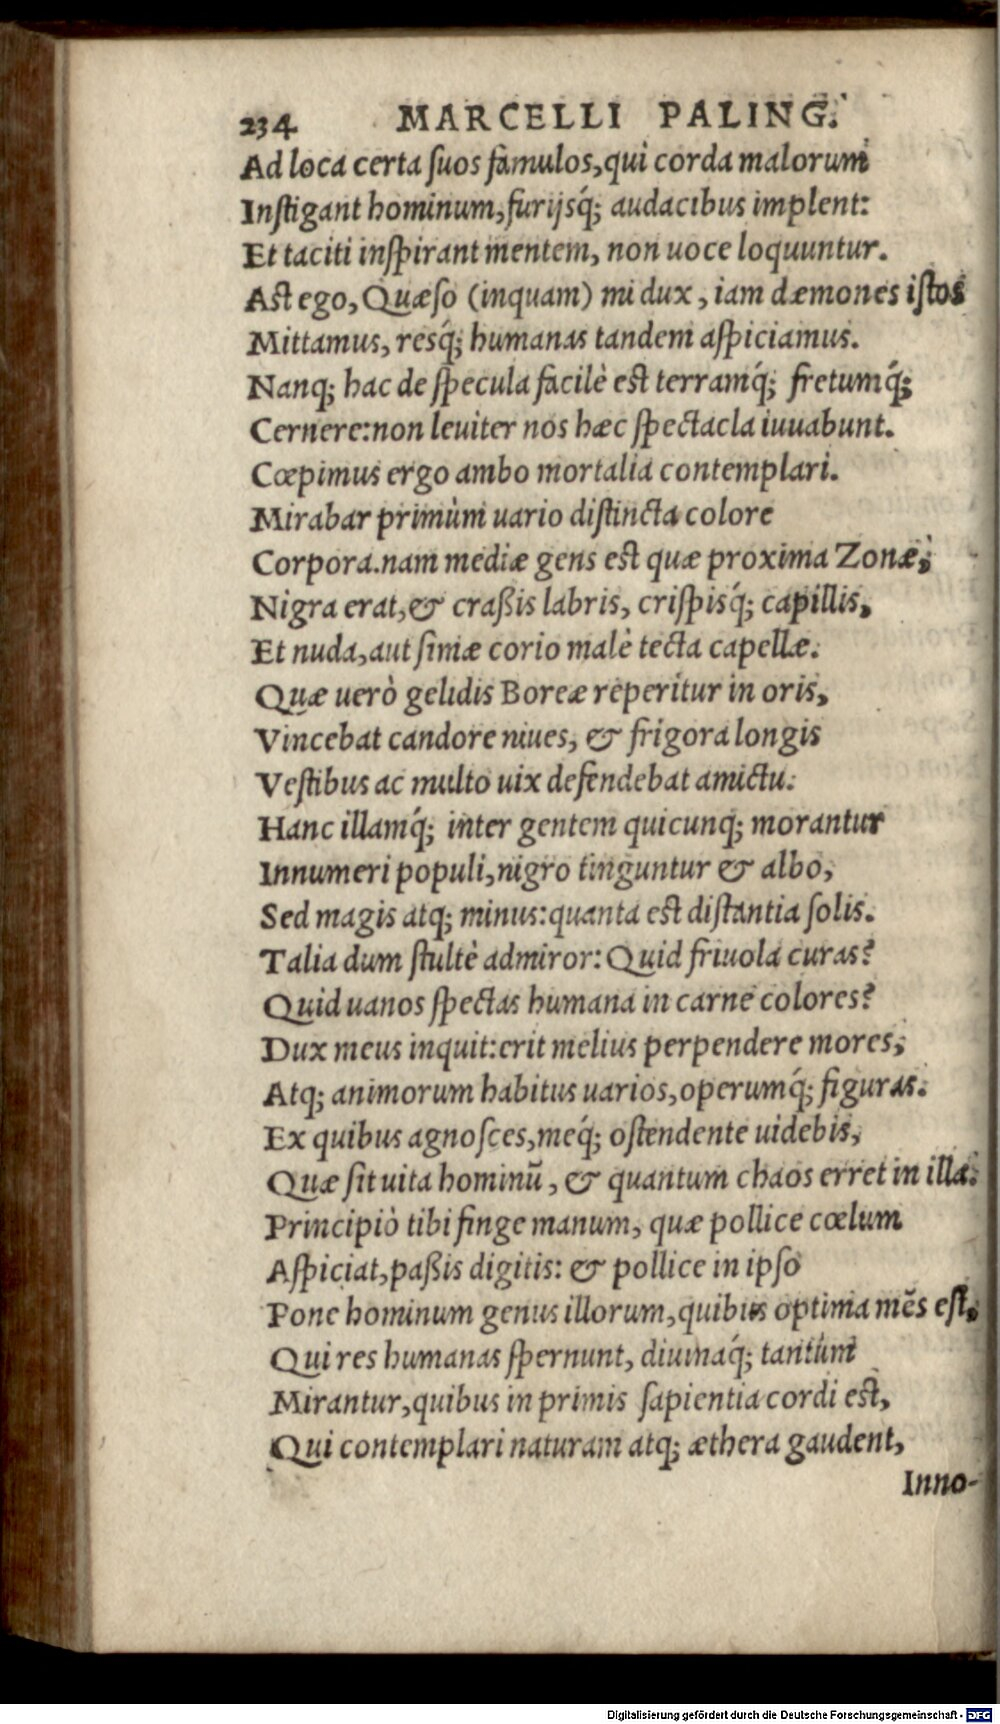 234 MARCELLI PALING.
Ad loca certa ſuos famulos, qui corda malorum
Inſtigant hominum, furijsq́; audacibus implent:
Et taciti inſpirant mentem, non uoce loquuntur.
Aſt ego, Quæſo (inquam) mi dux, iam dæmones iſtos
Mittamus, resq́; humanas tandem aſpiciamus.
Nanq; hac de ſpecula facilè eſt terramq́; fretumq́;
Cernere: non leuiter nos hæc ſpectacla iuuabunt.
Cœpimus ergo ambo mortalia contemplari.
Mirabar primùm uario diſtincta colore
Corpora. nam mediæ gens eſt quæ proxima Zonæ,
Nigra erat, & craßis labris, criſpisq́; capillis,
Et nuda, aut ſimæ corio malè tecta capellæ.
Quæ uerò gelidis Boreæ reperitur in oris,
Vincebat candore niues, & frigora longis
Veſtibus ac multo uix defendebat amictu.
Hanc illamq́; inter gentem quicunq; morantur
Innumeri populi, nigro tinguntur & albo,
Sed magis atq; minus: quanta eſt diſtantia ſolis.
Talia dum ſtultè admiror: Quid friuola curas?
Quid uanos ſpectas humana in carne colores?
Dux meus inquit: erit melius perpendere mores,
Atq; animorum habitus uarios, operumq́; figuras.
Ex quibus agnoſces, meq́; oſtendente uidebis,
Quæ ſit uita hominũ, & quantum chaos erret in illa.
Principiò tibi finge manum, quæ pollice cœlum
Aſpiciat, paßis digitis: & pollice in ipſo
Pone hominum genus illorum, quibus optima mẽs eſt,
Qui res humanas ſpernunt, diuinaq́; tantùm
Mirantur, quibus in primis ſapientia cordi eſt,
Qui contemplari naturam atq; æthera gaudent,
Inno-
Digitalisierung gefördert durch die Deutsche Forschungsgemeinschaft - DFG